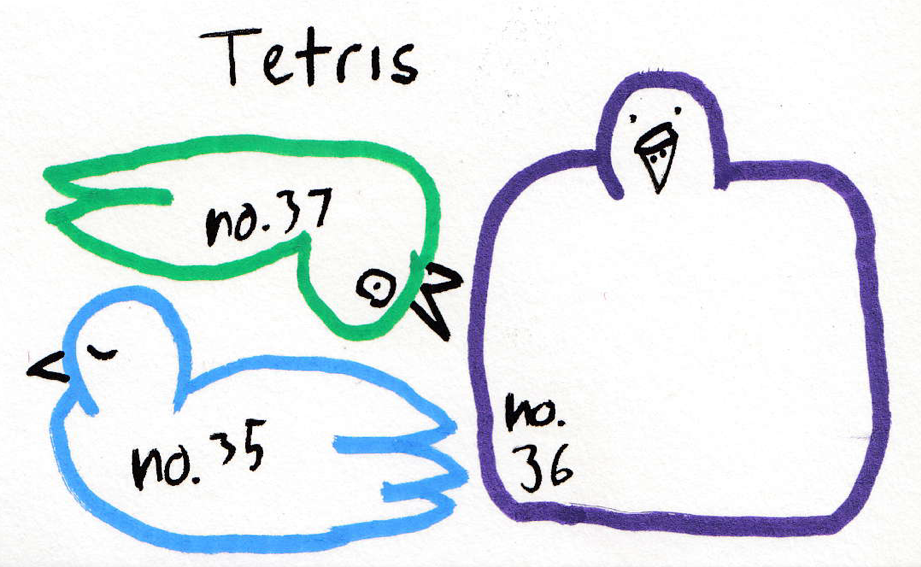 Tetris
no.37
no.35
no.
36